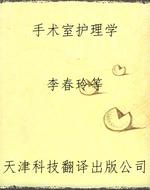 手术室护理学
李春玲等
天津科技翻译出版公司